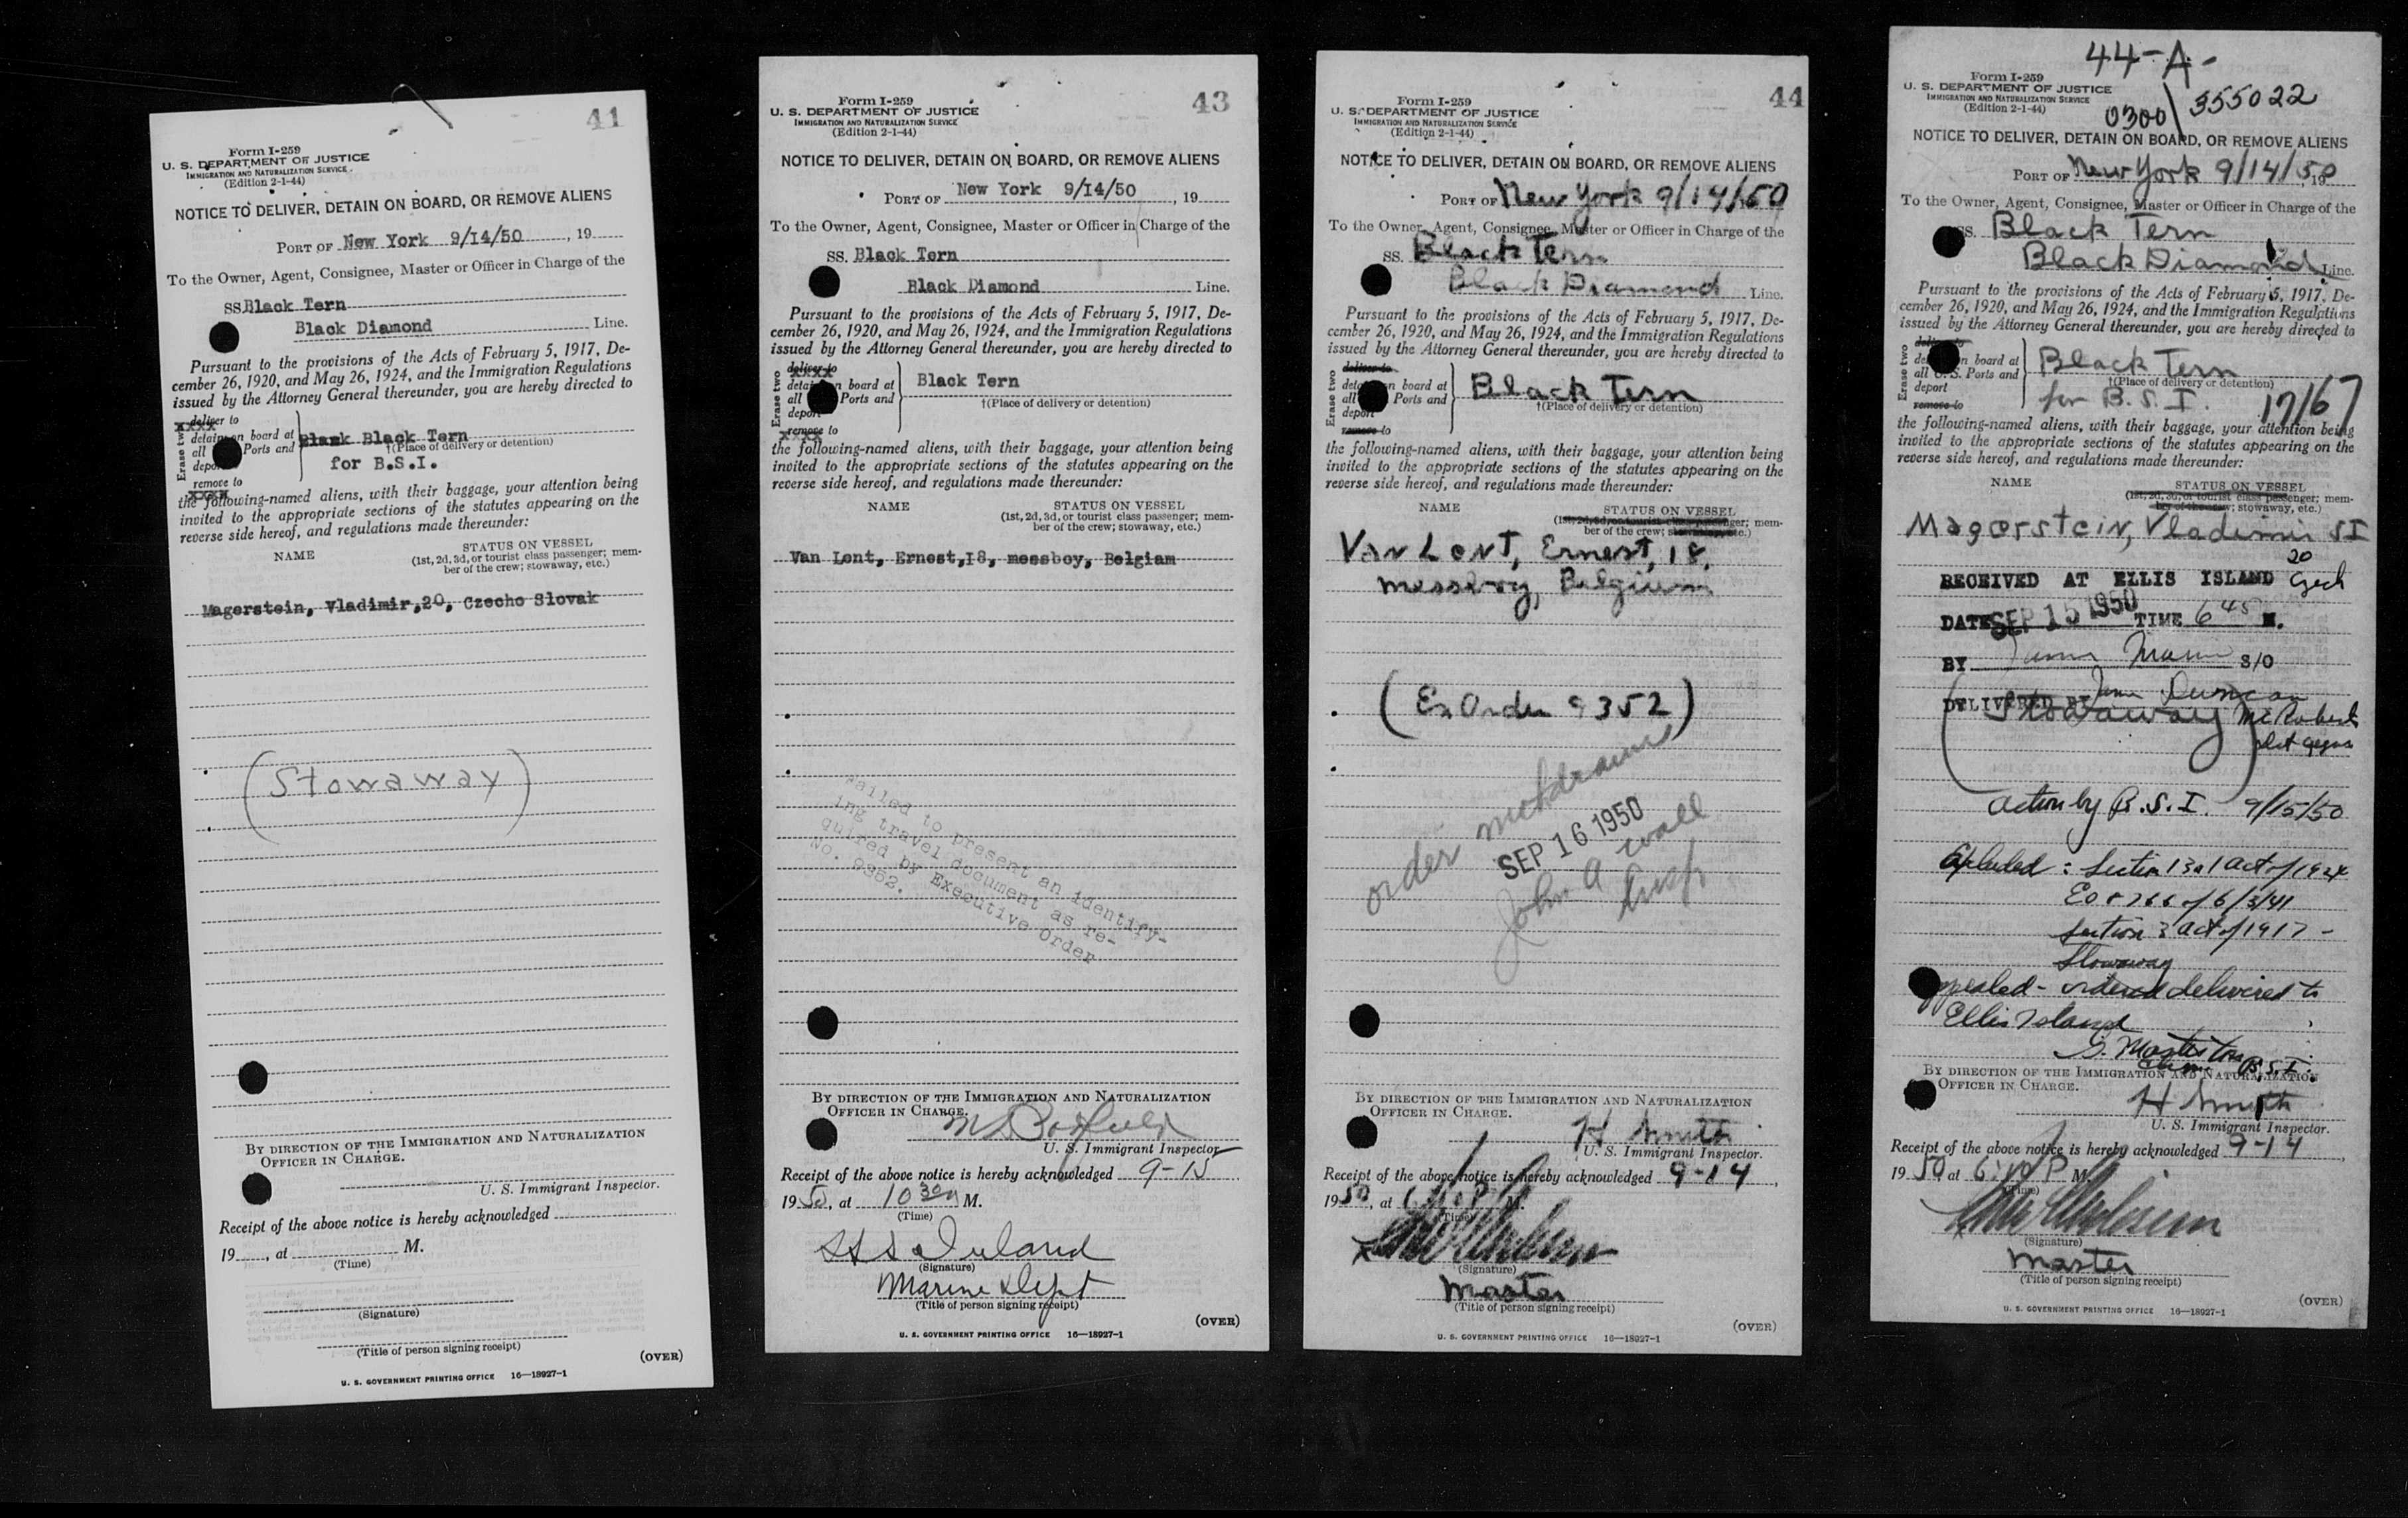 41
Form I-259
U. S. DEPARTMENT OF JUSTICE
IMMIGRATION AND NATURALIZATION SERVICE
(Edition 2-1-44)
NOTICE TO DELIVER, DETAIN ON BOARD, OR REMOVE ALIENS
PORT OF New York 9/I4/50, 19
To the Owner, Agent, Consignee, Master or Officer in Charge of the
SS. Black Tern
Black Diamond Line.
Pursuant to the provisions of the Acts of February 5, 1917, De-
cember 26, 1920, and May 26, 1924, and the Immigration Regulations
issued by the Attorney General thereunder, you are hereby directed to
Erase two
deliver to
detain on board at
all Ports and
deport
remove to
Black Tern
†(Place of delivery or detention)
for B.S.I.
the following-named aliens, with their baggage, your attention being
invited to the appropriate sections of the statutes appearing on the
reverse side hereof, and regulations made thereunder:
NAME STATUS ON VESSEL
(1st, 2d, 3d, or tourist class passenger; mem-
ber of the crew; stowaway, etc.)
Magerstein, Vladimir, 20, Czecho Slovak
(Stowaway)
BY DIRECTION OF THE IMMIGRATION AND NATURALIZATION
OFFICER IN CHARGE.
U. S. Immigrant Inspector.
Receipt of the above notice is hereby acknowledged
19, at M.
(Time)
(Signature)
(Title of person signing receipt)
(OVER)
U. S. GOVERNMENT PRINTING OFFICE 16—18927-1
43
Form I-259
U. S. DEPARTMENT OF JUSTICE
IMMIGRATION AND NATURALIZATION SERVICE
(Edition 2-1-44)
NOTICE TO DELIVER, DETAIN ON BOARD, OR REMOVE ALIENS
PORT OF New York 9/I4/50, 19
To the Owner, Agent, Consignee, Master or Officer in Charge of the
SS. Black Tern
Black Diamond Line.
Pursuant to the provisions of the Acts of February 5, 1917, De-
cember 26, 1920, and May 26, 1924, and the Immigration Regulations
issued by the Attorney General thereunder, you are hereby directed to
Erase two
deliver to
detain on board at
all Ports and
deport
remove to
Black Tern
†(Place of delivery or detention)
the following-named aliens, with their baggage, your attention being
invited to the appropriate sections of the statutes appearing on the
reverse side hereof, and regulations made thereunder:
NAME STATUS ON VESSEL
(1st, 2d, 3d, or tourist class passenger; mem-
ber of the crew; stowaway, etc.)
Van Lent, Ernest, I8, messboy, Belgiam
Failed to present an identify-
ing travel document as re-
quired by Executive Order
No. 9352.
BY DIRECTION OF THE IMMIGRATION AND NATURALIZATION
OFFICER IN CHARGE.
U. S. Immigrant Inspector
Receipt of the above notice is hereby acknowledged 9-15
1950, at 10 30 M.
(Time)
(Signature)
Marine Dept
(Title of person signing receipt)
(OVER)
U. S. GOVERNMENT PRINTING OFFICE 16—18927-1
44
Form I-259
U. S. DEPARTMENT OF JUSTICE
IMMIGRATION AND NATURALIZATION SERVICE
(Edition 2-1-44)
NOTICE TO DELIVER, DETAIN ON BOARD, OR REMOVE ALIENS
PORT OF New York 9/14/50
To the Owner, Agent, Consignee, Master or Officer in Charge of the
SS. Black Tern
Black Diamond Line.
Pursuant to the provisions of the Acts of February 5, 1917, De-
cember 26, 1920, and May 26, 1924, and the Immigration Regulations
issued by the Attorney General thereunder, you are hereby directed to
Erase two
deliver to
detain on board at
all Ports and
deport
remove to
Black Tern
†(Place of delivery or detention)
the following-named aliens, with their baggage, your attention being
invited to the appropriate sections of the statutes appearing on the
reverse side hereof, and regulations made thereunder:
NAME STATUS ON VESSEL
(1st, 2d, 3d, or tourist class passenger; mem-
ber of the crew; stowaway, etc.)
Van Lent, Ernest, 18,
messboy, Belgium
(Ex Order 9352)
order withdrawn
SEP 16 1950
John A Wall
Insp
BY DIRECTION OF THE IMMIGRATION AND NATURALIZATION
OFFICER IN CHARGE.
H Smith
U. S. Immigrant Inspector.
Receipt of the above notice is hereby acknowledged 9-14,
1950, at P M.
(Time)
(Signature)
Master
(Title of person signing receipt)
(OVER)
U. S. GOVERNMENT PRINTING OFFICE 16—18927-1
44-A-
Form I-259
U. S. DEPARTMENT OF JUSTICE
IMMIGRATION AND NATURALIZATION SERVICE
(Edition 2-1-44)
0300/355022
NOTICE TO DELIVER, DETAIN ON BOARD, OR REMOVE ALIENS
PORT OF New York 9/14/50
To the Owner, Agent, Consignee, Master or Officer in Charge of the
SS. Black Tern
Black Diamond Line.
Pursuant to the provisions of the Acts of February 5, 1917, De-
cember 26, 1920, and May 26, 1924, and the Immigration Regulations
issued by the Attorney General thereunder, you are hereby directed to
Erase two
deliver to
detain on board at
all U. S. Ports and
deport
remove to
Black Tern
†(Place of delivery or detention)
for B.S.I. 17/67
the following-named aliens, with their baggage, your attention being
invited to the appropriate sections of the statutes appearing on the
reverse side hereof, and regulations made thereunder:
NAME STATUS ON VESSEL
(1st, 2d, 3d, or tourist class passenger; mem-
ber of the crew; stowaway, etc.)
Magerstein, Vladimir SI
20
Czech
RECEIVED AT ELLIS ISLAND
DATE SEP 15 1950 TIME 6 45 M.
BY S/O
DELIVERED BY Duncan
(Stowaway) McRoberts
Action by B.S.I. 9/15/50
Excluded: Section 13a1 Act of 1924
EO 8766 of 6/3/41
Section 3 Act of 1917 -
Stowaway
Appealed - ordered delivered to
Ellis Island
B.S.I.
BY DIRECTION OF THE IMMIGRATION AND NATURALIZATION
OFFICER IN CHARGE.
H Smith
U. S. Immigrant Inspector.
Receipt of the above notice is hereby acknowledged 9-14,
1950 at 6:10 P M.
(Time)
(Signature)
Master
(Title of person signing receipt)
(OVER)
U. S. GOVERNMENT PRINTING OFFICE 16—18927-1